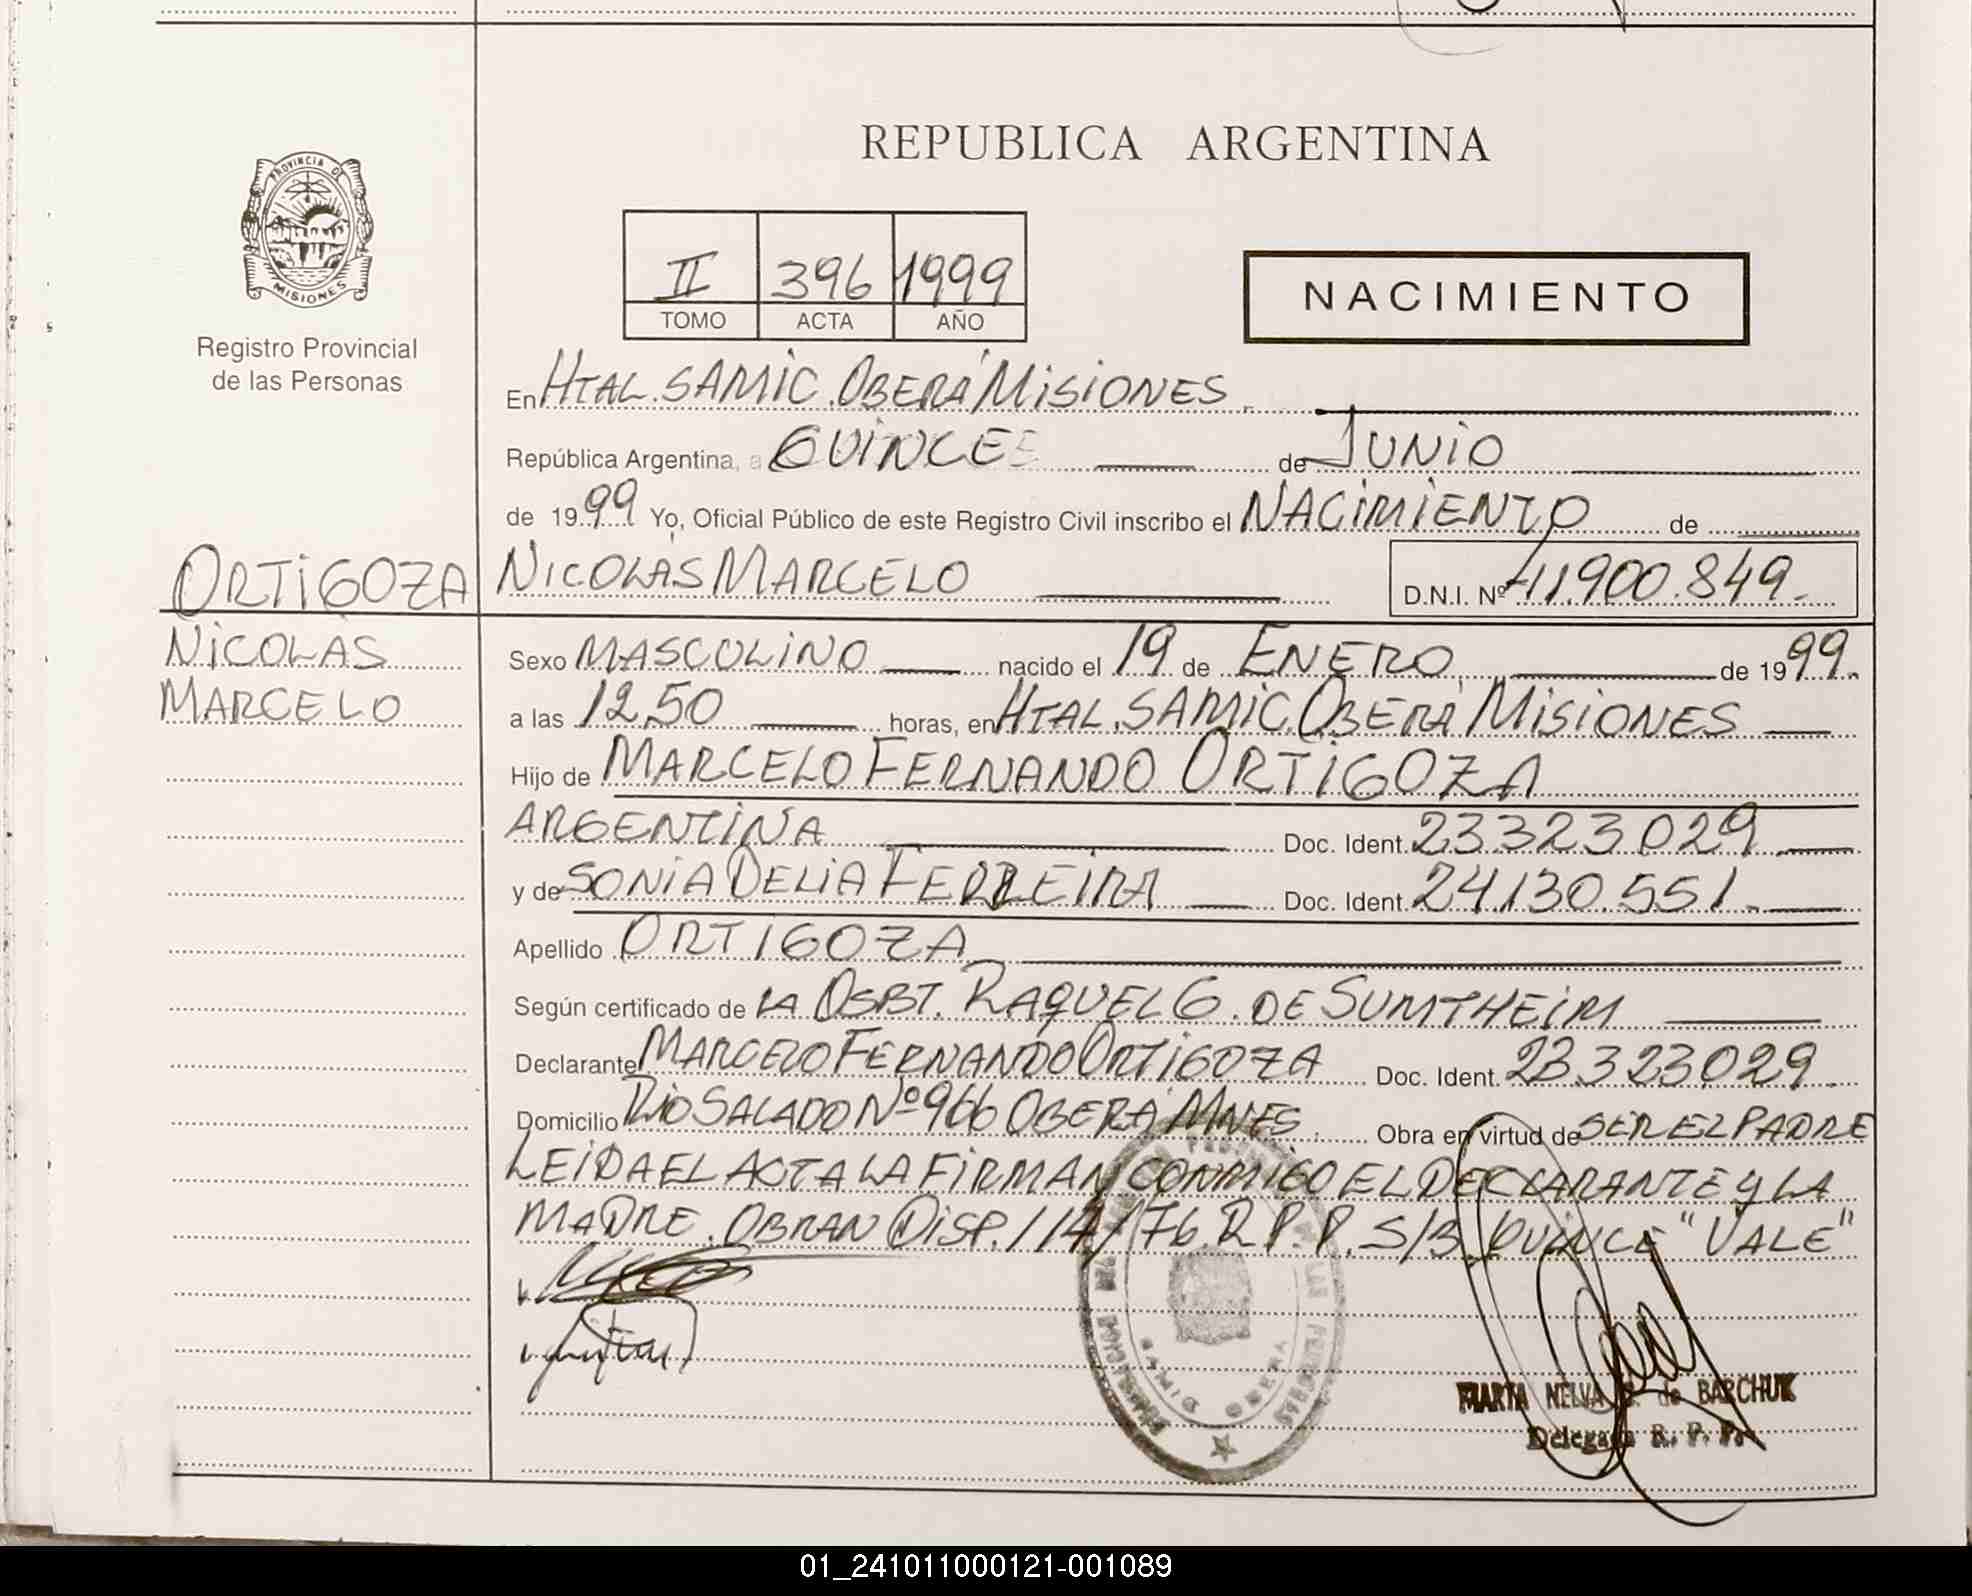 REPUBLICA ARGENTINA
PROVINCIA DE
MISIONES
Registro Provincial
de las Personas
II 396 1999
TOMO ACTA AÑO
NACIMIENTO
En HTAL. SAMIC. OBERÁ MISIONES
República Argentina, a QUINCE de JUNIO
de 1999 Yo, Oficial Público de este Registro Civil inscribo el NACIMIENTO de
ORTIGOZA NICOLÁS MARCELO D.N.I. Nº 41.900.849.
NICOLÁS
MARCELO
Sexo MASCULINO nacido el 19 de ENERO de 1999.
a las 12.50 horas, en HTAL. SAMIC. OBERÁ MISIONES
Hijo de MARCELO FERNANDO ORTIGOZA
ARGENTINA Doc. Ident. 23.323.029.
y de SONIA DELIA FERREIRA Doc. Ident. 24.130.551.
Apellido ORTIGOZA
Según certificado de LA OSBT. RAQUEL G. DE SUMTHEIM
Declarante MARCELO FERNANDO ORTIGOZA Doc. Ident. 23.323.029.
Domicilio RIO SALADO Nº 966 OBERÁ MNES. Obra en virtud de SER EL PADRE
LEIDA EL ACTA LA FIRMAN CONMIGO EL DECLARANTE Y LA
MADRE. OBRAN DISP. 114/76 R.P.P. S/B. QUINCE "VALE"
OBERA
MARTA NELVA S. de BARCHUK
Delegada R. P. P.
01_241011000121-001089